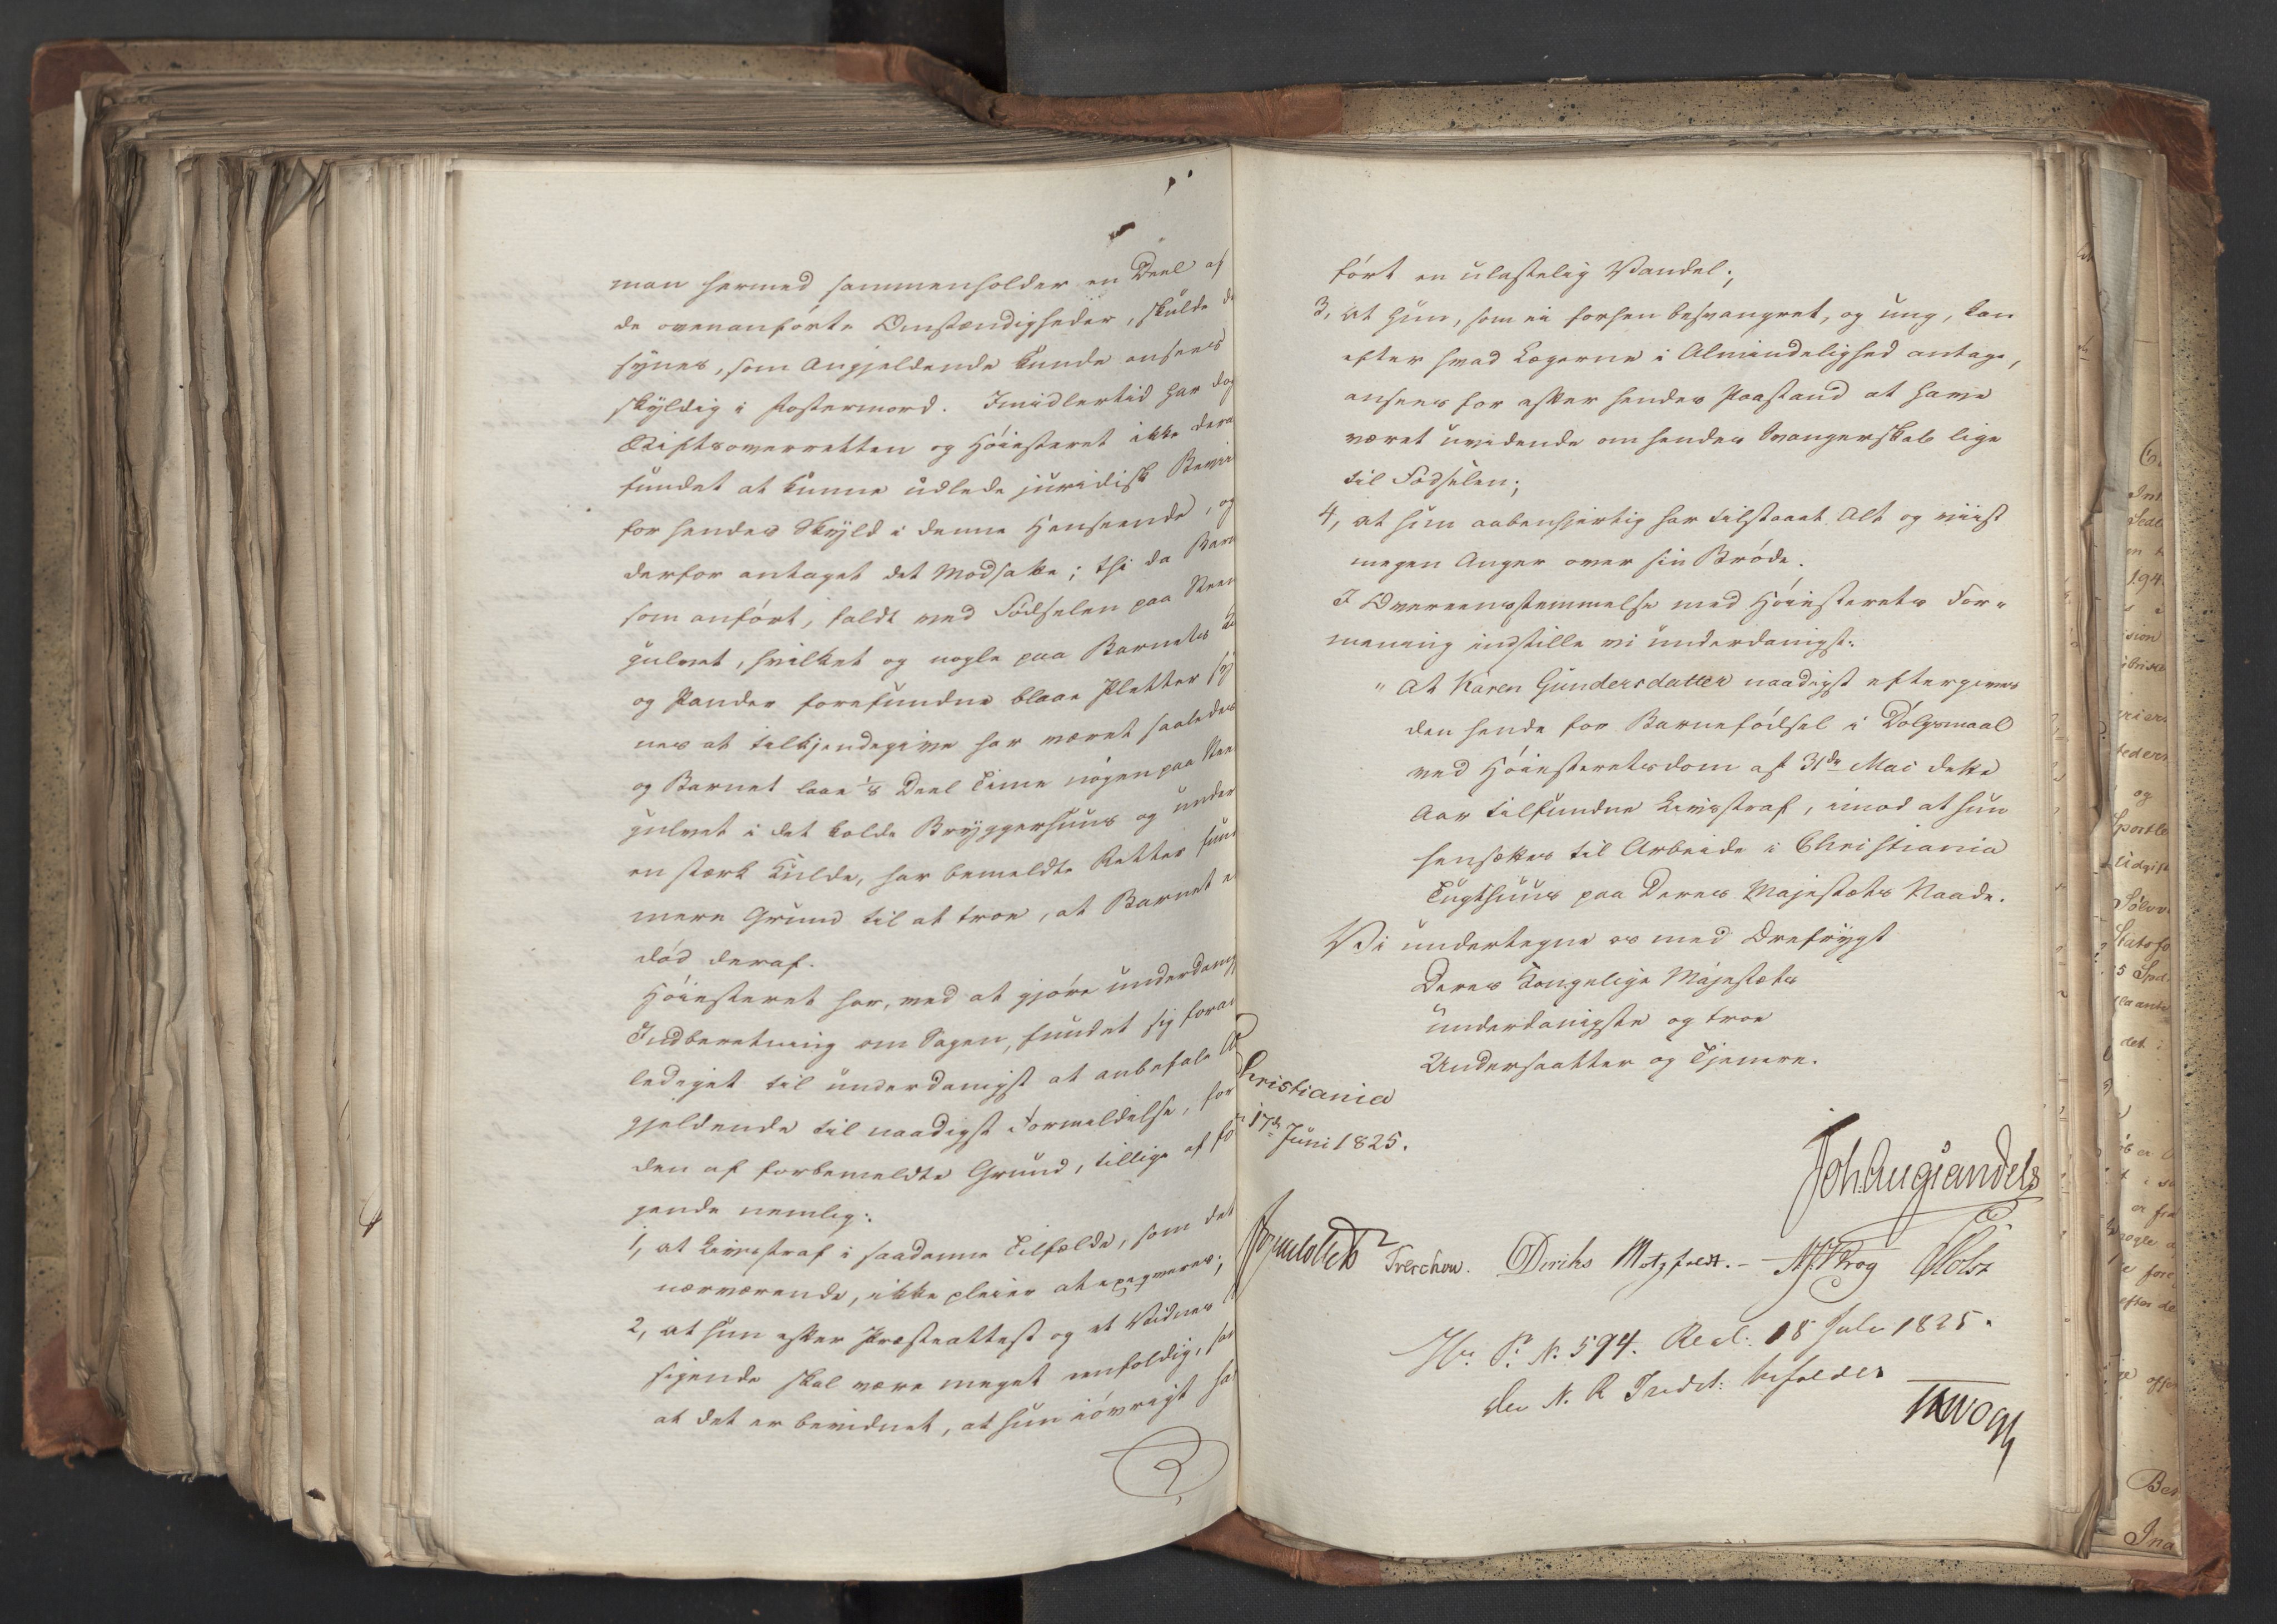 man hermed sammenholder en Deel af
de ovenanførte Omstændigheder, skulde
synes, som Angjeldende kunde ansees
skyldig i Fostermord. Imidlertid har dog
Stiftsoverretten og Høiesteret ikke dera
fundet at kunne udlede juridisk Beviis
for hendes Skyld i denne Henseende, og
derfor antaget det Modsatte; thi da Barn
som anført, faldt ved Fødselen paa Steen
gulvet, hvilket og nogle paa Barnets
og Pander forefundne blaae Pletter sy
nes at tilkjendegive har været saaledes
og Barnet laae 1/8 Deel Time nøgen paa Steen
gulvet i det kolde Bryggerhuus og under
en stærk Kulde, har bemeldte Retter fun
mere Grund til at troe, at Barnet e
død deraf.
Høiesteret har, ved at gjøre underdanig
Indberetning om Sagen, fundet sig foran
lediget til underdanigst at anbefale An
gjeldende til naadigst Formildelse, for
den af forbemeldte Grund, tillige af føl
gende nemlig:
1, at Livsstraf i saadanne Tilfælde, som det
nærværende, ikke pleier at exeqveres;
2, at hun efter Præsteattest og et Vidnes
sigende skal være meget eenfoldig, sa
at det er bevidnet, at hun iøvrigt ha
ført en ulastelig Vandel;
3, at hun, som ei forhen besvangret, og ung, kan
efter hvad Lægerne i Almindelighed antage,
ansees for efter hendes Paastand at have
været uvidende om hendes Svangerskab lige
til Fødselen;
4, at hun aabenhjertig har tilstaaet Alt og viist
megen Anger over sin Brøde.
I Overeensstemmelse med Høiesterets For-
mening indstille vi underdanigst:
" At Karen Gundersdatter naadigst eftergives
den hende for Barnefødsel i Dølgsmaal
ved Høiesteretsdom af 31de Mai dette
Aar tilfundne Livsstraf, imod at hun
hensættes til Arbeide i Christiania
Tugthuus paa Deres Majestæts Naade.
Vi undertegne os med Ærefrygt
Deres Kongelige Majestæts
underdanigste og troe
Undersaatter og Tjenere.
Christiania
17de Juni 1825.
Joh. Aug. Sandels
Sommerhielm Treschow. Diriks Motzfeldt. - Krog Holst
No. 594. Resol: 18 Juli 1825.
Den N. R. Indst: bifaldes
Vogt